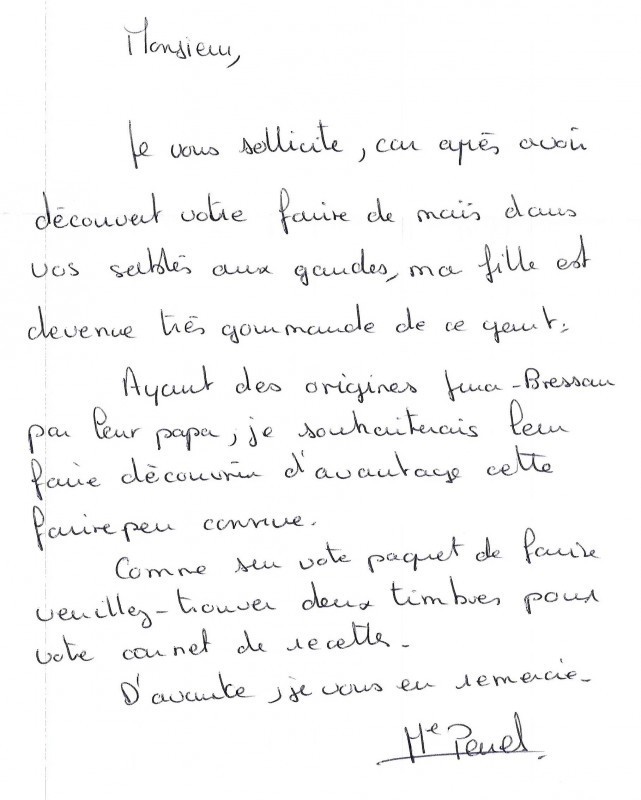 Monsieur,
Je vous sollicite, car après avoir
découvert votre farine de maïs dans
vos sablés aux gaudes, ma fille est
devenue très gourmande de ce gout.
Ayant des origines Jura-Bressan
par leur papa, je souhaiterais leur
faire découvrir d'avantage cette
farine peu connue.
Comme sur votre paquet de farine
veuillez-trouver deux timbres pour
votre carnet de recette.
D'avance, je vous en remercie.
Me